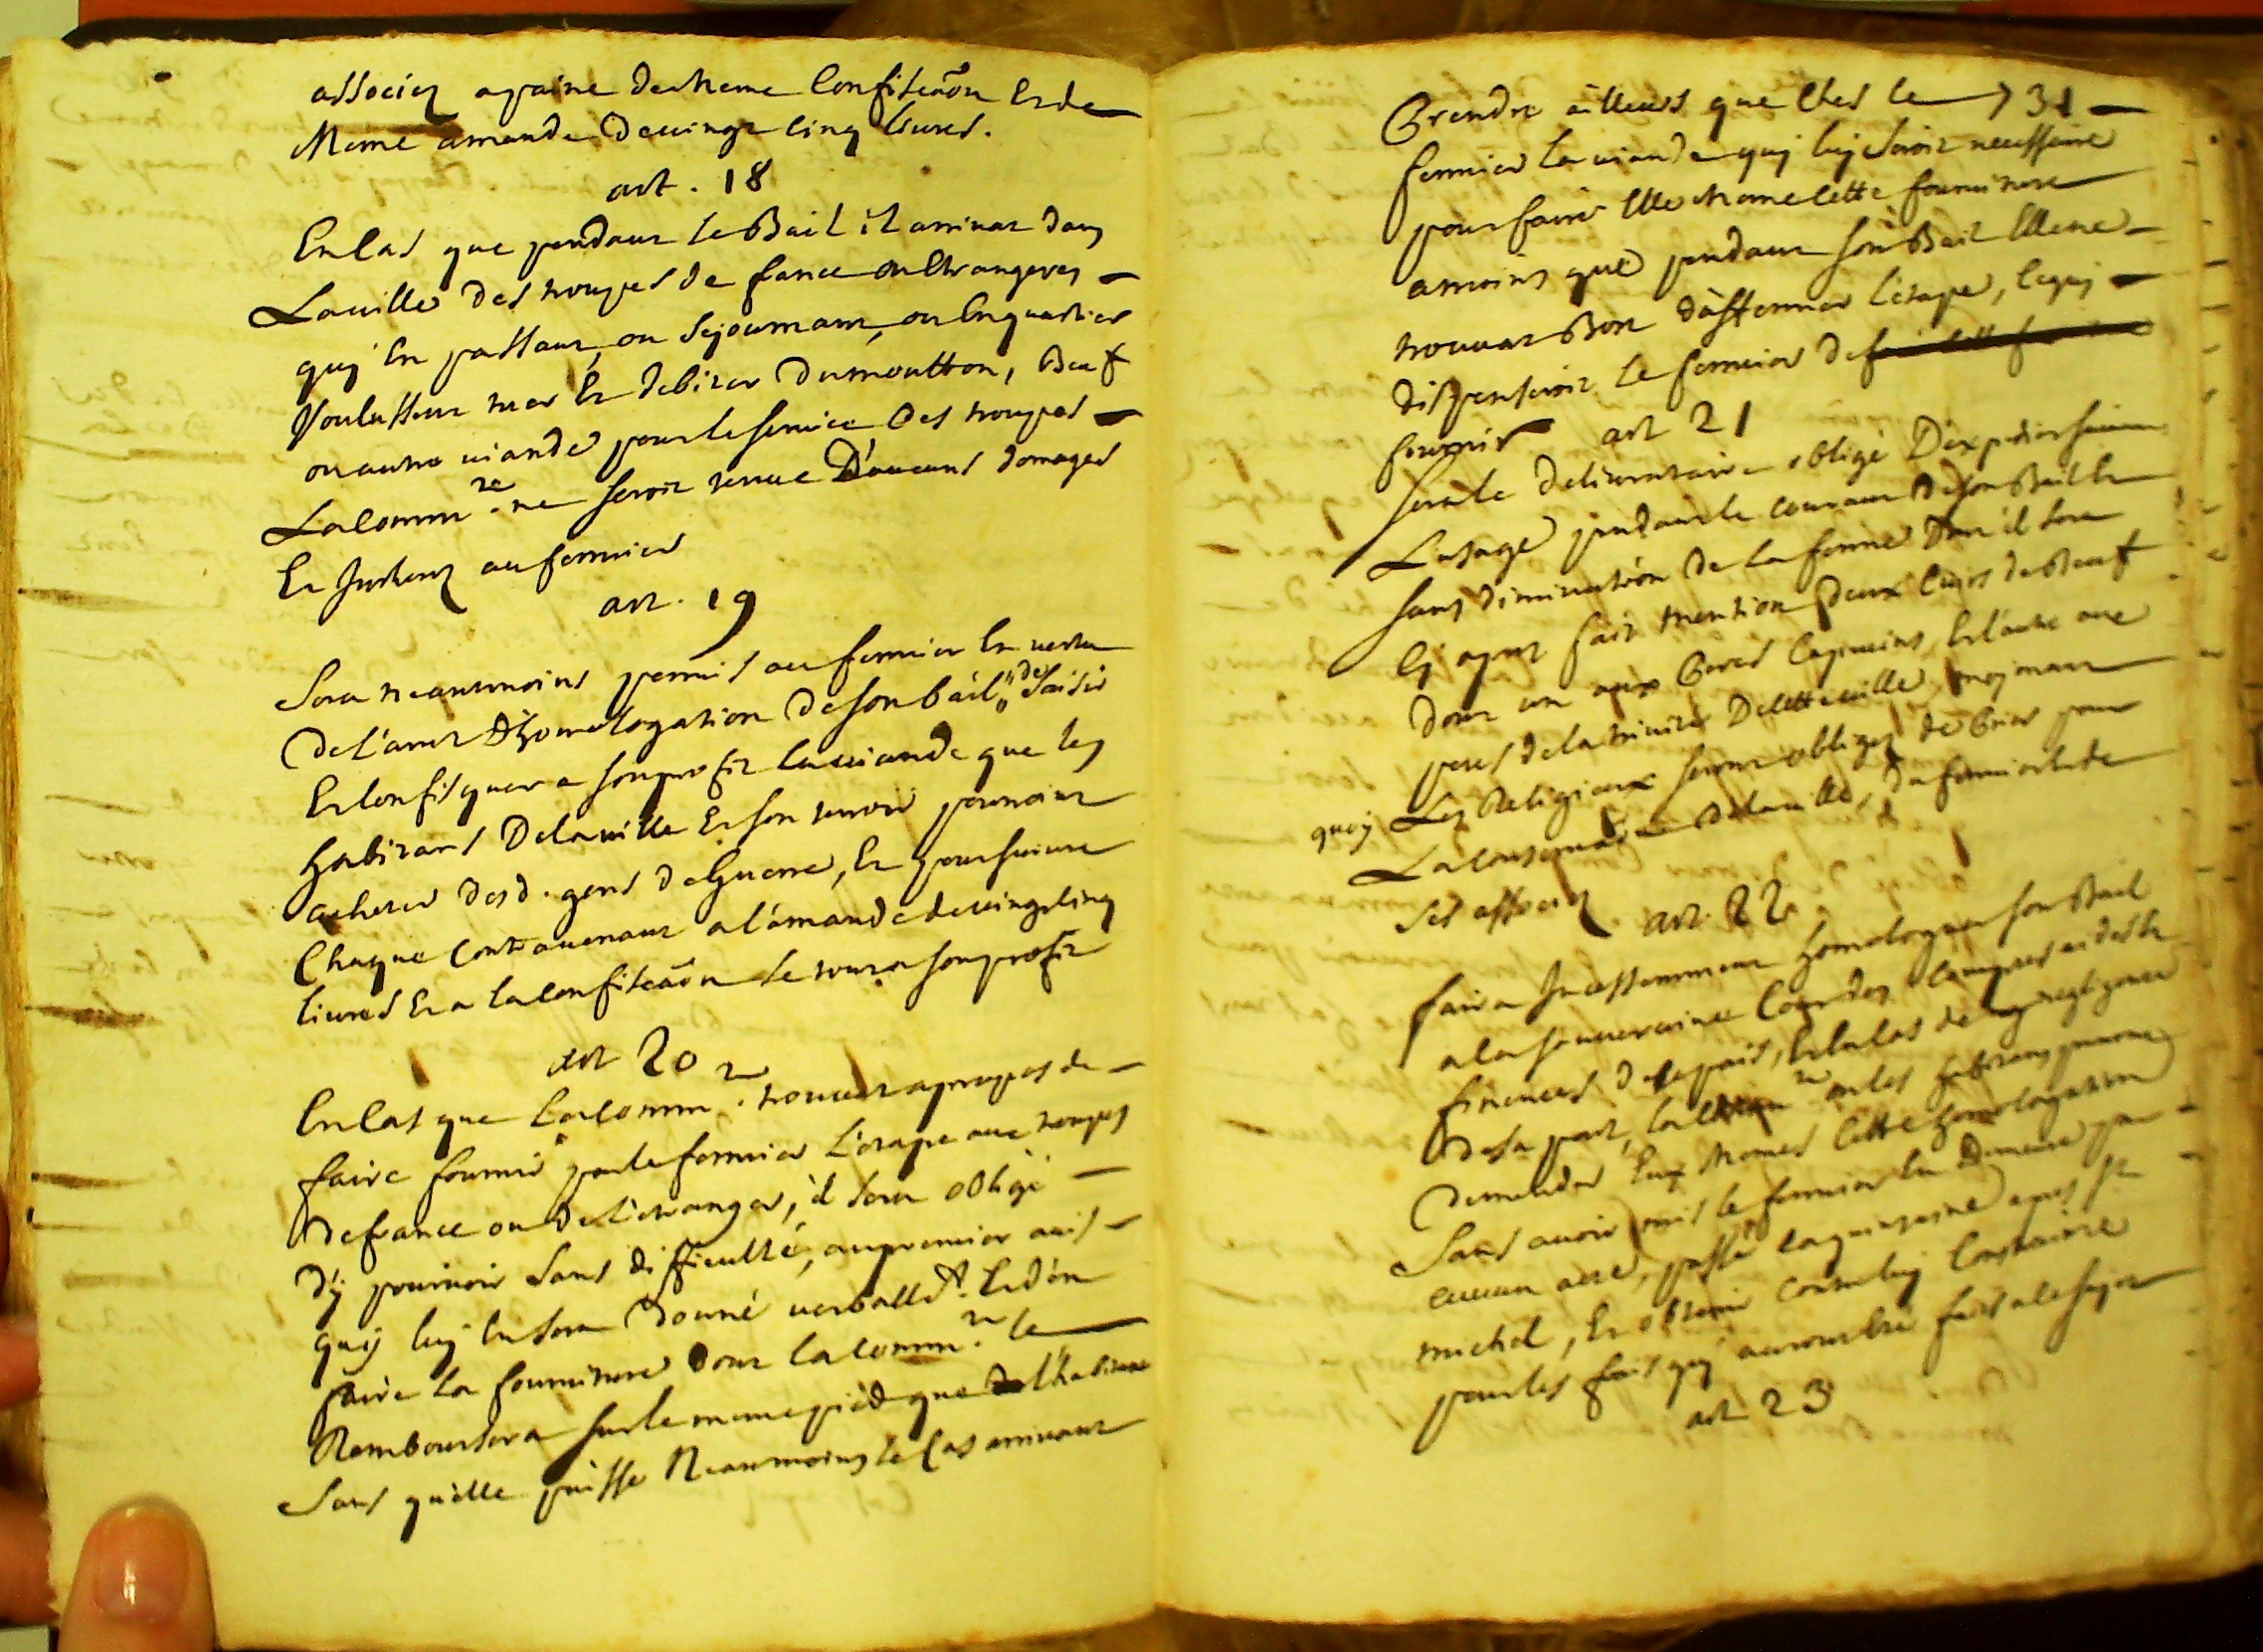 associez apaine de meme Confiscaõn Et de
Meme amande de vingt cinq livres.
art. 18
En Cas que pendant le Bail il arrivat dans
La ville des troupes de france ou Etrangeres
quy En passant, ou Sejournant, ou En quartier
Voulussent tuer Et debiter du moutton, Beuf
ou autre viande pour le service Des troupes
La Comm.re ne seroit tenue D'aucuns domages
Et Jnterez au fermier
art. 19
Sera neantmoins permis au fermier En vertu
De l'arret d'homologation de son bail, de Saisir
Et Confisquer a son profit la viande que les
habitans De la ville Et son terroir pourroint
acheter des d. gens de Guerre, Et poursuivre
Chaque Contravenant a l'amande de vingt cinq
livres Et a la Confiscaõn le tout a son profit
art 20
En Cas que La Comm.re trouvat a propos de
faire fournir par le fermier L'etape aux troupes
De france ou de l'etranger, il sera obligé
D'y pourvoir Sans difficulté, au premier avis
quy luy En sera Donné verballem.t Et d'en
faire La fourniture dont la Comm.re le
Remboursera sur le meme pied que l'habitant
Sans qu'elle puisse Neanmoins le Cas arrivant
Prendre ailleurs que Ches le 731
fermier La viande quy luy seroit necessaire
pour faire Elle meme Cette fourniture
amoins que pendant son Bail Elle ne
trouvat Bon d'affermer l'etape, Ce quy
dispenseroit le fermier de
fournir art 21
Sera le delivrataire obligé D'expedier suivant
L'usage pendant le courant de son Bail Et
sans diminution De La ferme Dont il sera
Cy apres fait mention deux Cuirs de Beuf
dont un aux Peres Capucins, Et l'autre aux
peres de la trinité De cette ville, moyenant
quoy Les Religieux seront obligez de Prier pour
La Conservation de la ville, du fermier Et de
Ses associez
art. 22
faire Jncessamment homologuer son Bail
a la souveraine Cour des Comptes aides Et
finances de ce pais, Et En Cas de negligence
De sa part, la Comm.re ou les habitans pourront
Demander Eux memes Cette homologation
Sans avoir mis le fermier En Demeure par
aucun acte, passé la quinzaine apres St
michel, Et obtenir Contre luy Contrainte
pour les frais quy auront Eté faits a ce sujet
art 23